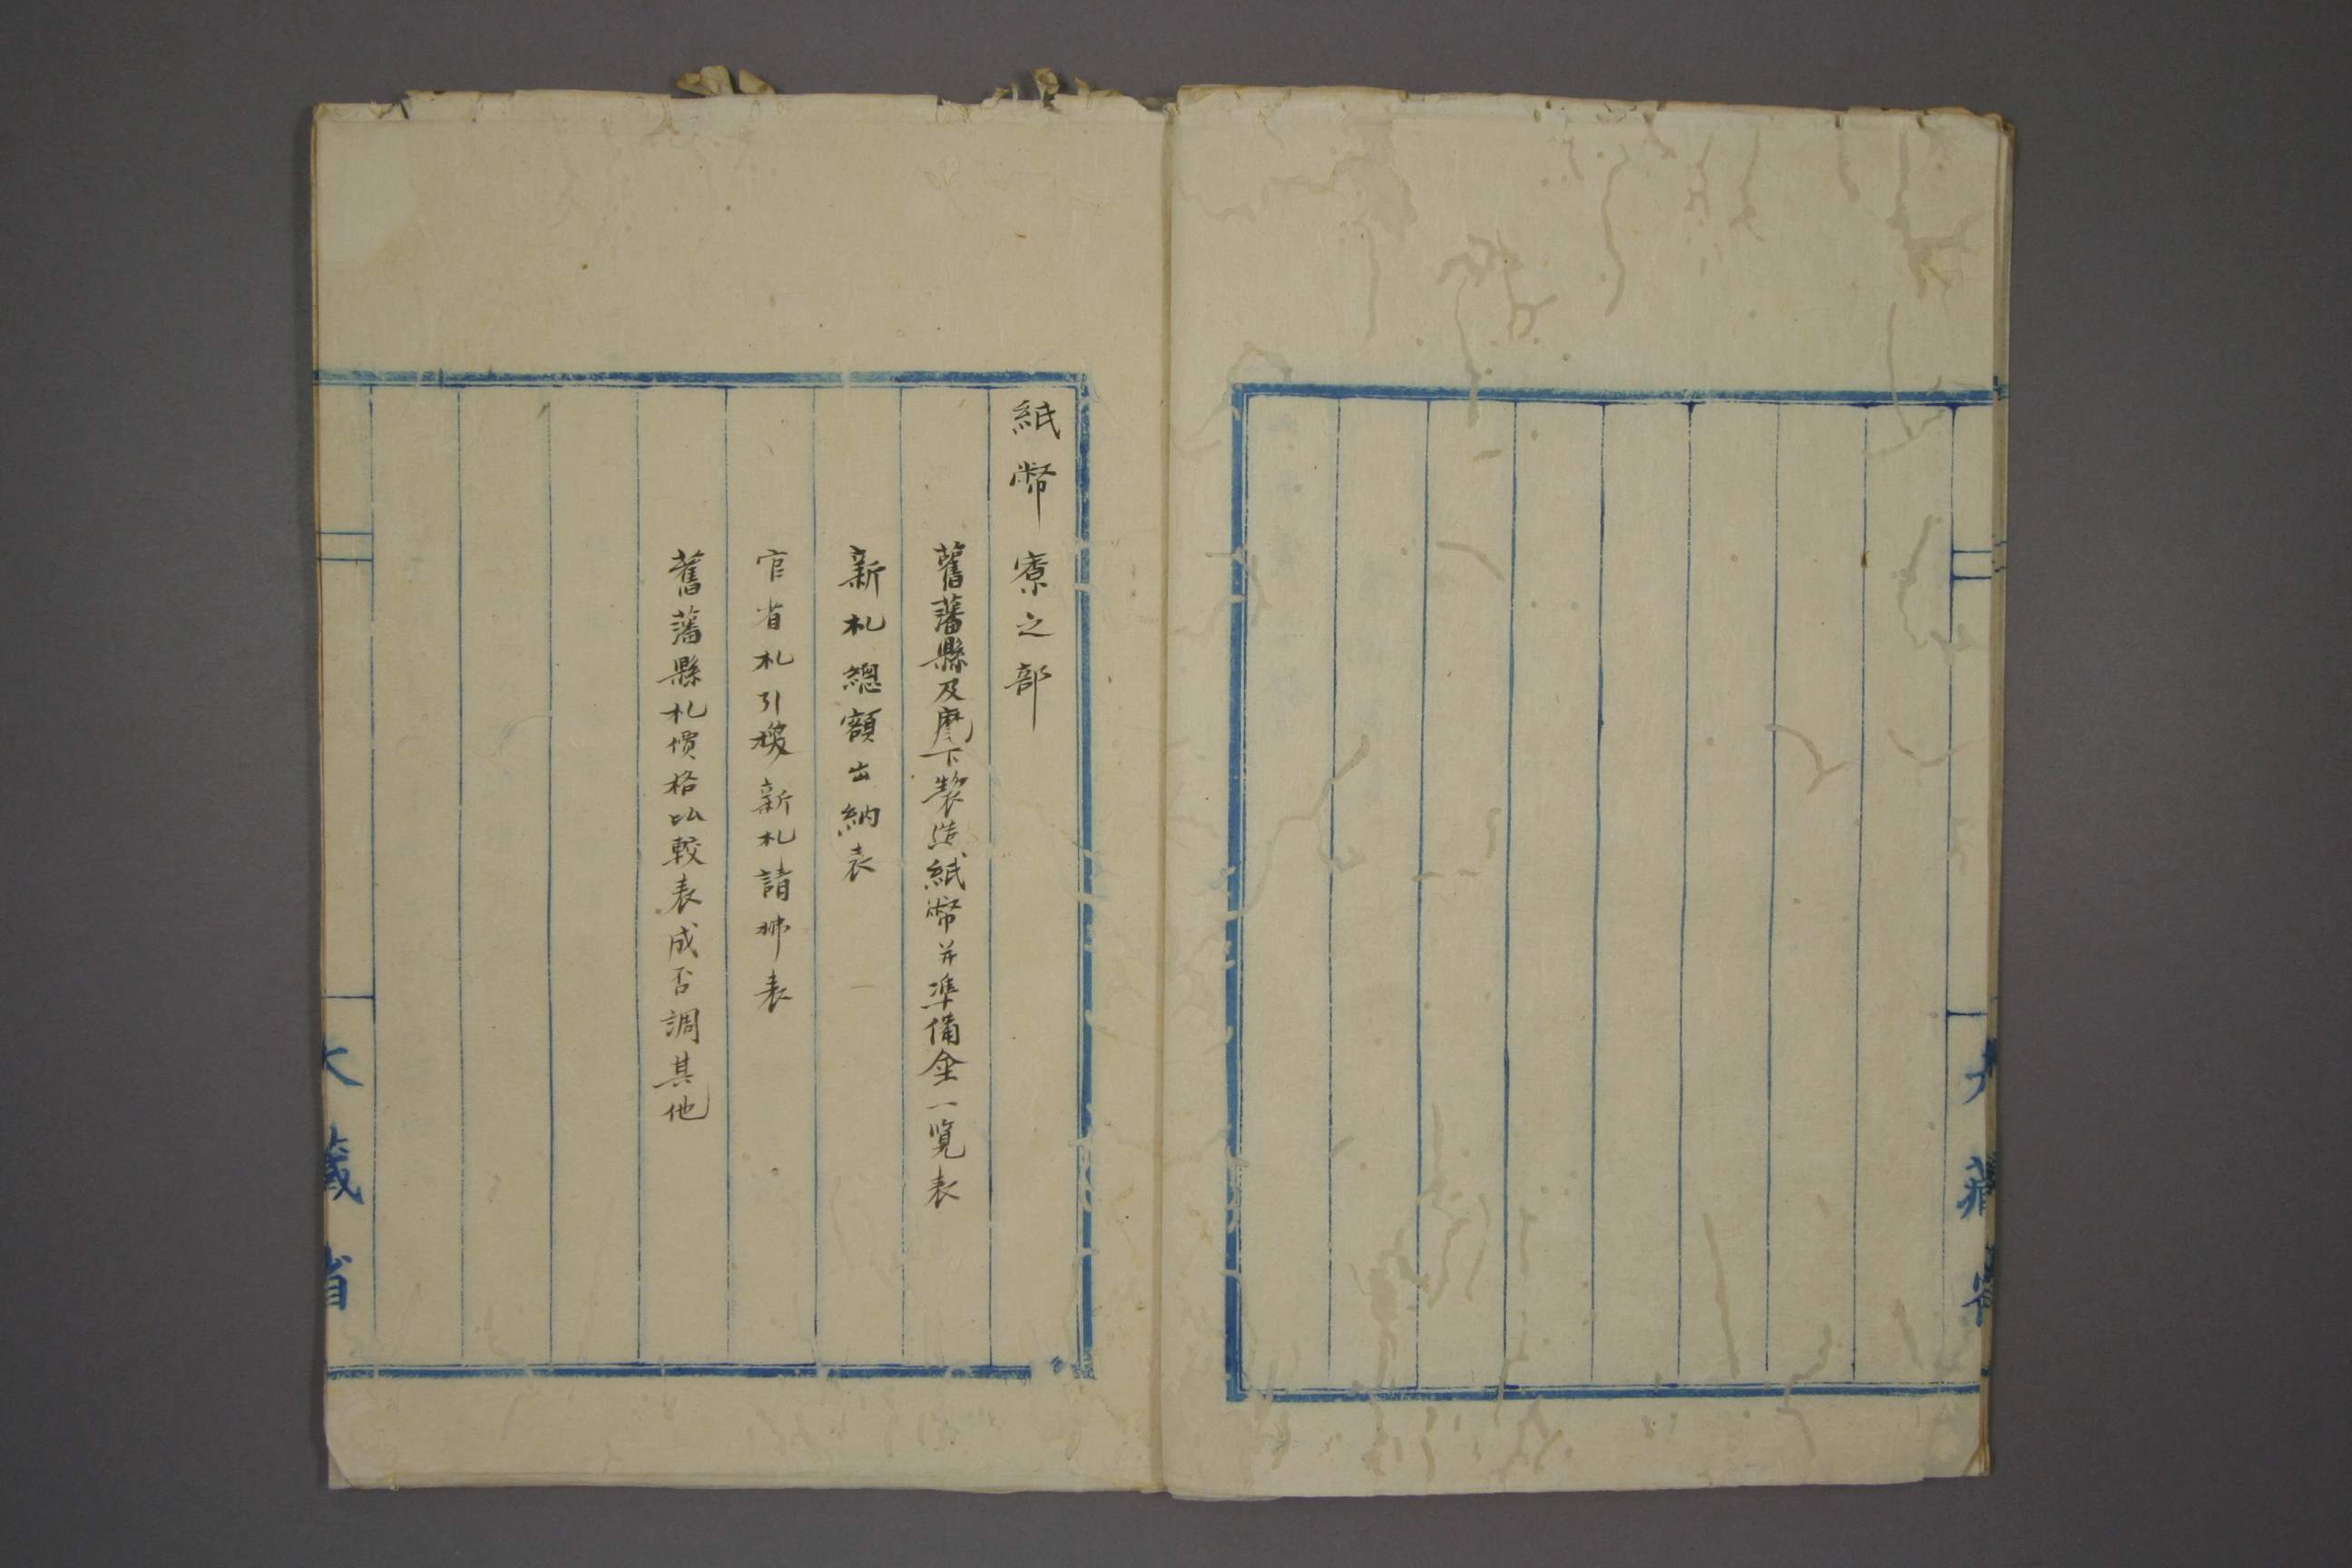 大藏省
紙幣寮之部
舊藩縣及麾下製造紙幣并準備金一覧表
新札總額出納表
官省札引換新札請拂表
舊藩縣札價格比較表成否調其他
大藏省